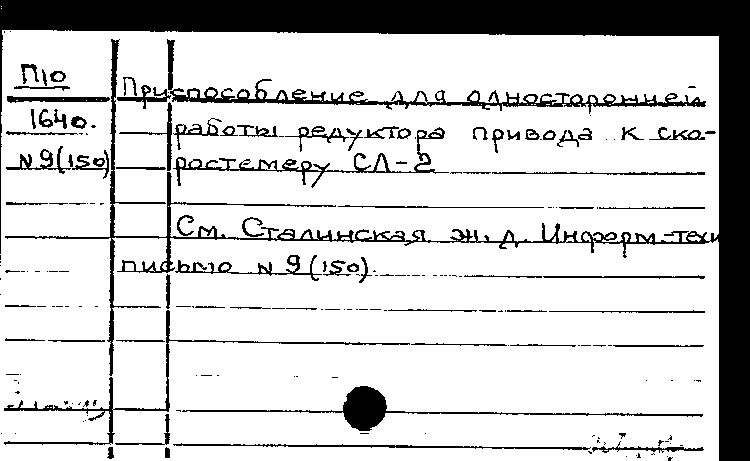 П10
1640.
N9(150)
Приспособление для односторонней
работы редуктора привода к ско-
ростемеру СЛ-2
См. Сталинская ж.д. Информ.-техн
письмо N 9 (150)